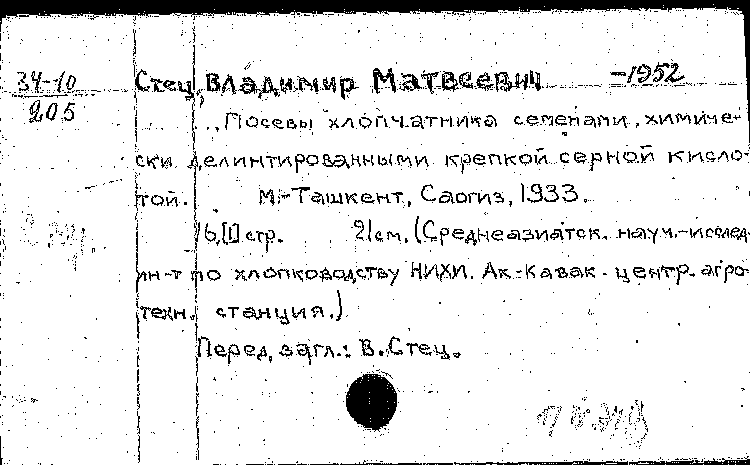 34-10
205
Стец, Владимир Матвеевич -1952
Посевы хлопчатника семенами, химиче-
ски делинтированными крепкой серной кисло-
той. М.-Ташкент, Саогиз, 1933.
16,[1] стр. 21 см. (Среднеазиатск. науч.-исслед.
ин-т по хлопководству НИХИ. Ак.-Кавак. центр. агро-
техн. станция.)
Перед загл.: В. Стец.